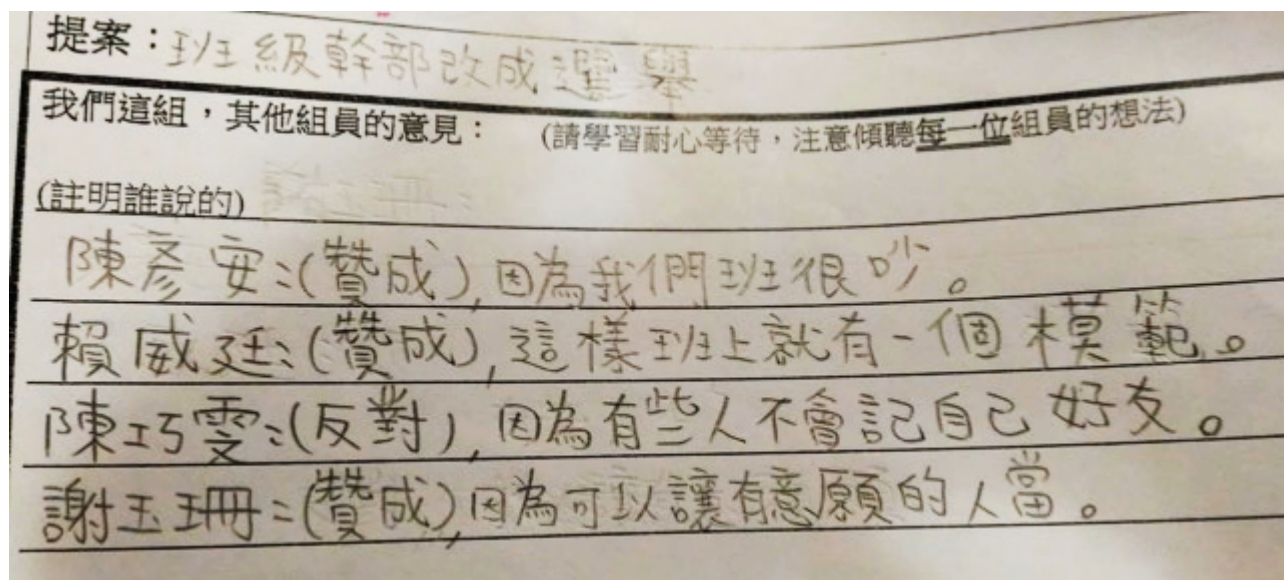 提案：班級幹部改成選舉
我們這組，其他組員的意見： (請學習耐心等待，注意傾聽每一位組員的想法)
(註明誰說的)
陳彥安：(贊成)，因為我們班很吵。
賴威廷：(贊成)，這樣班上就有一個模範。
陳巧雯：(反對)，因為有些人不會記自己好友。
謝玉珊：(贊成)，因為可以讓有意願的人當。